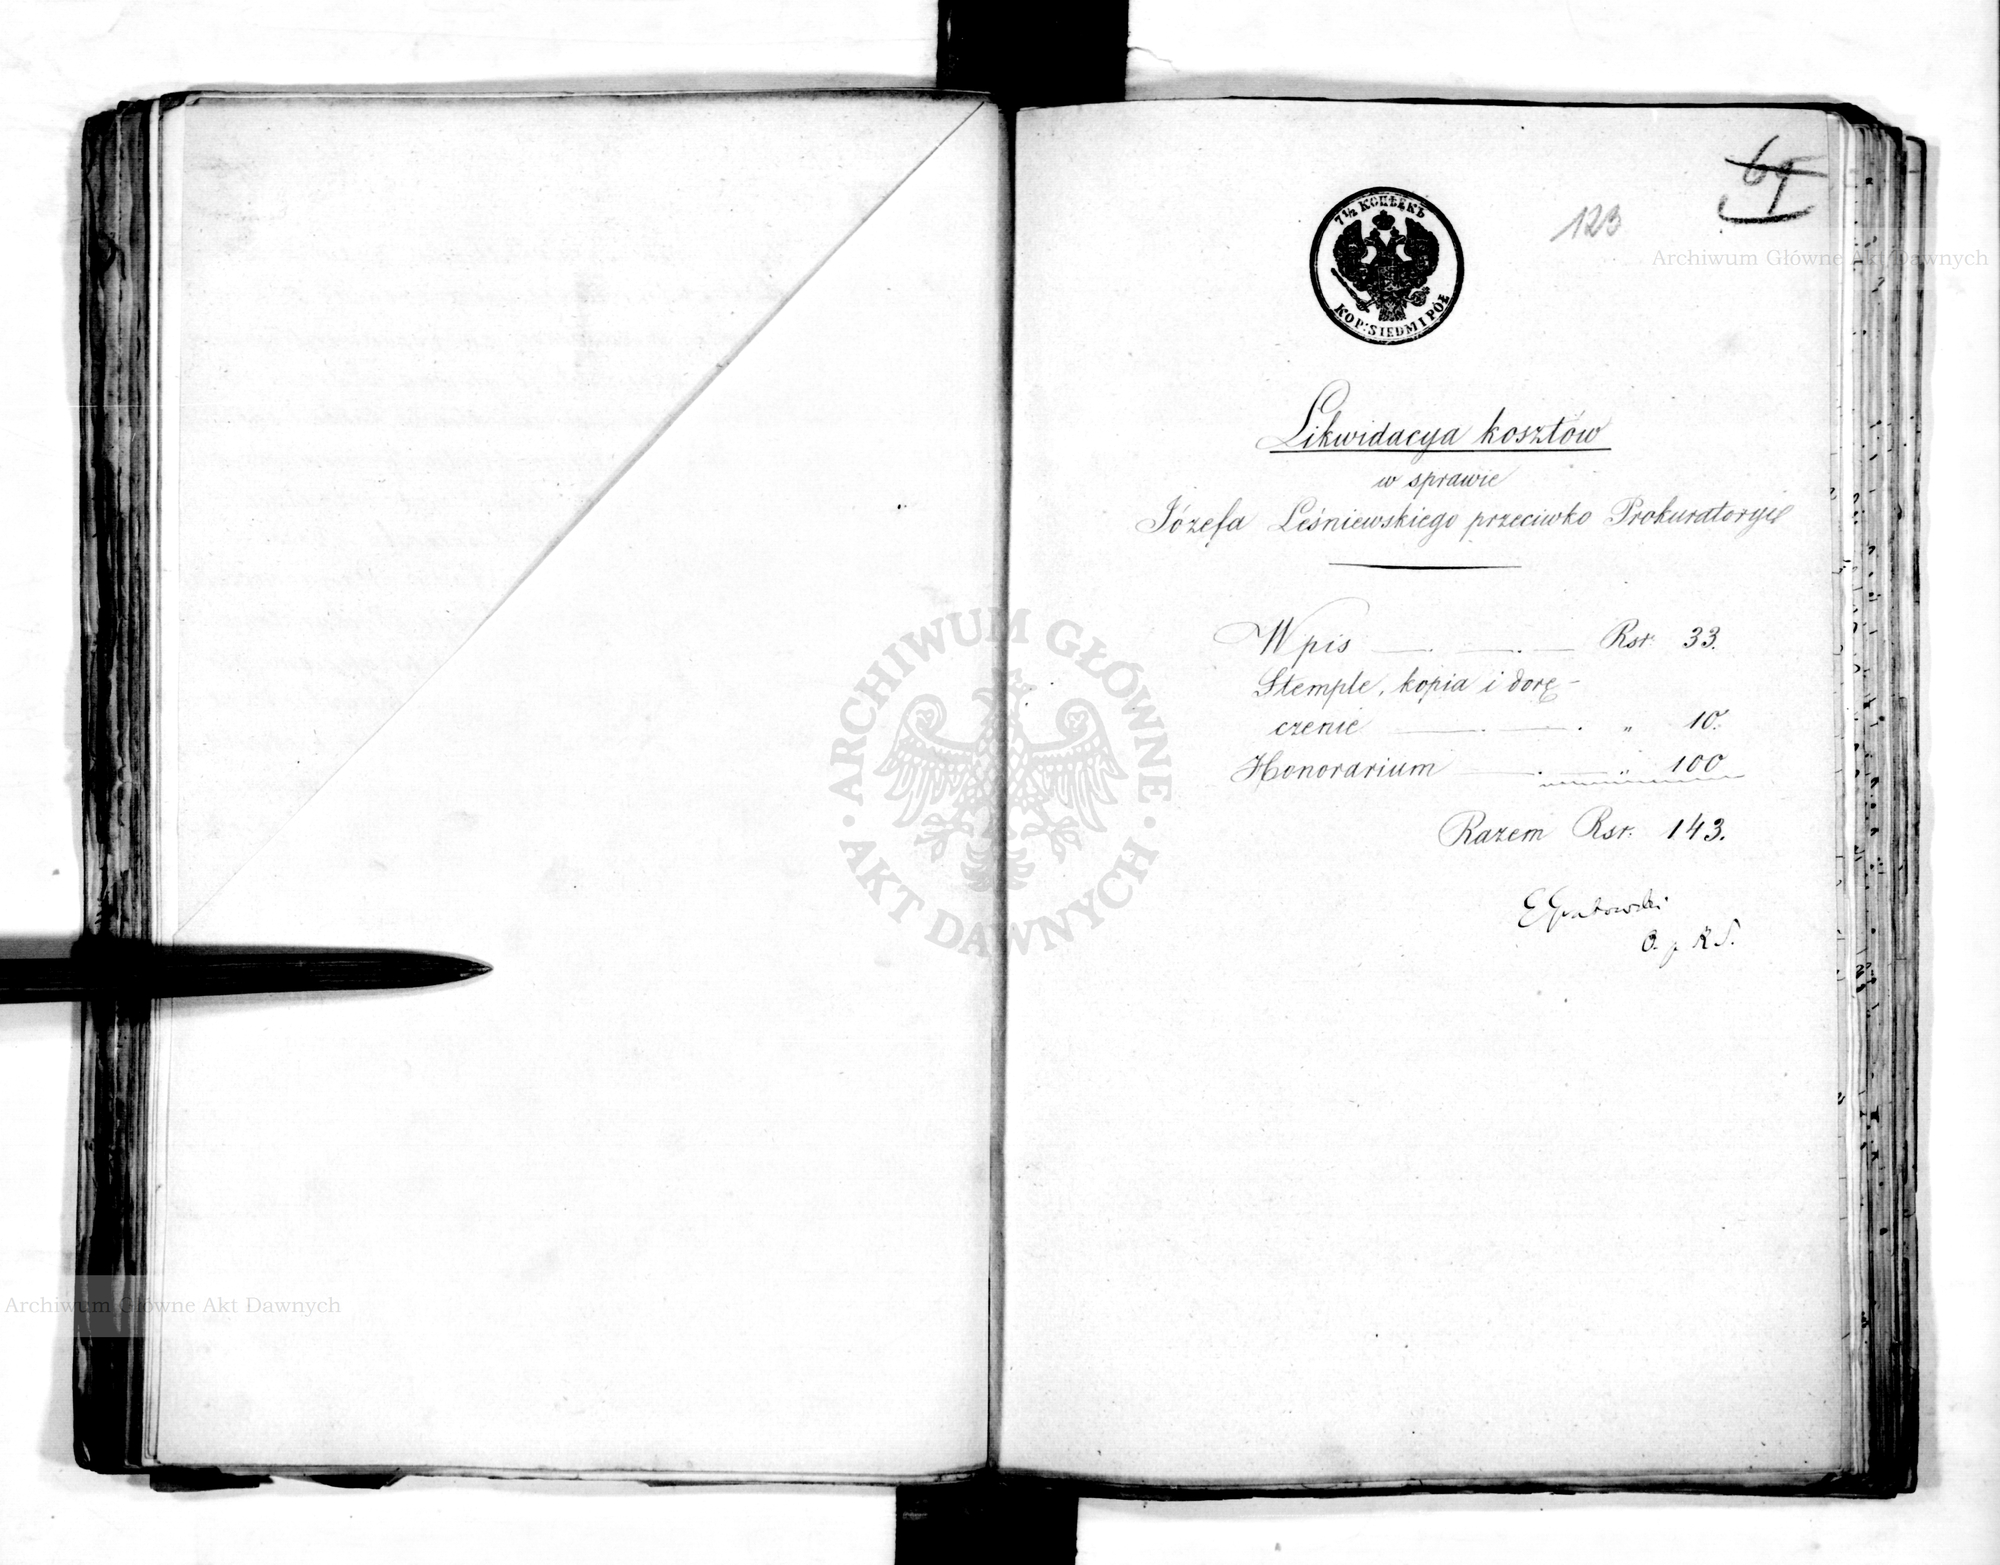 7½ КОПѢЕКЪ
KOP: SIEDM I PÓŁ
123
Archiwum Główne Akt Dawnych
Likwidacya kosztów
w sprawie
Józefa Leśniewskiego przeciwko Prokuratoryi
Wpis Rsr. 33.
Stemple, kopia i dorę-
czenie " 10.
Honorarium " 100
Razem Rsr. 143.
E Grabowski
O. p. K S.
ARCHIWUM GŁÓWNE
AKT DAWNYCH
Archiwum Główne Akt Dawnych